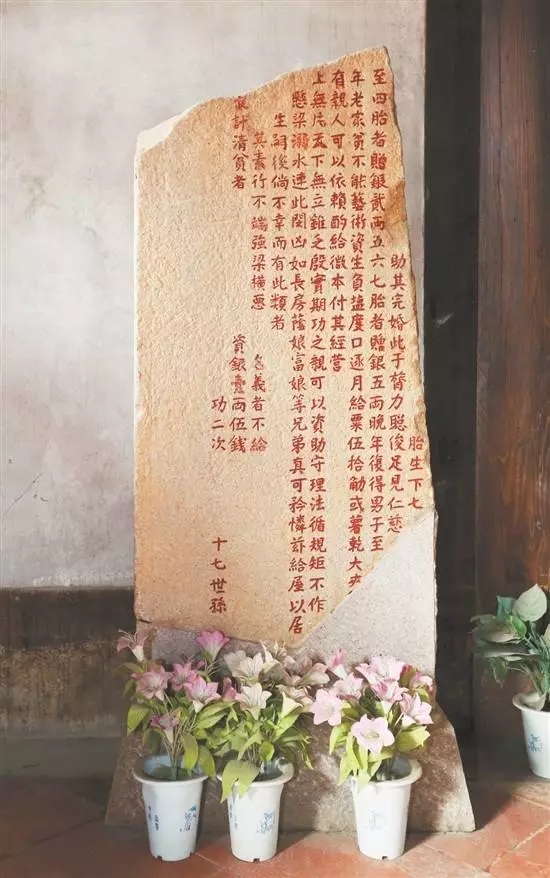 胎生下七
助其完婚此于膂力聡俊足見仁慈
至四胎者贈銀貳両五六七胎者贈銀五両晚年復得男子至
年老家貧不能藝術資生負度口逐月給粟伍拾觔或薯乾大
有親人可以依賴酌給微本付其經营
上無片瓦下無立錐之殷實期功之親可以資助守理法循規矩不作
懸梁溺水遭此閔凶如長房蔭娘富娘等兄弟真可矜憐茲給屋以居
生嗣後倘不幸而有此類者
其素行不端強梁橫惡 名義者不給
家計清貧者 資銀壹両伍錢
功二次
十七世孫